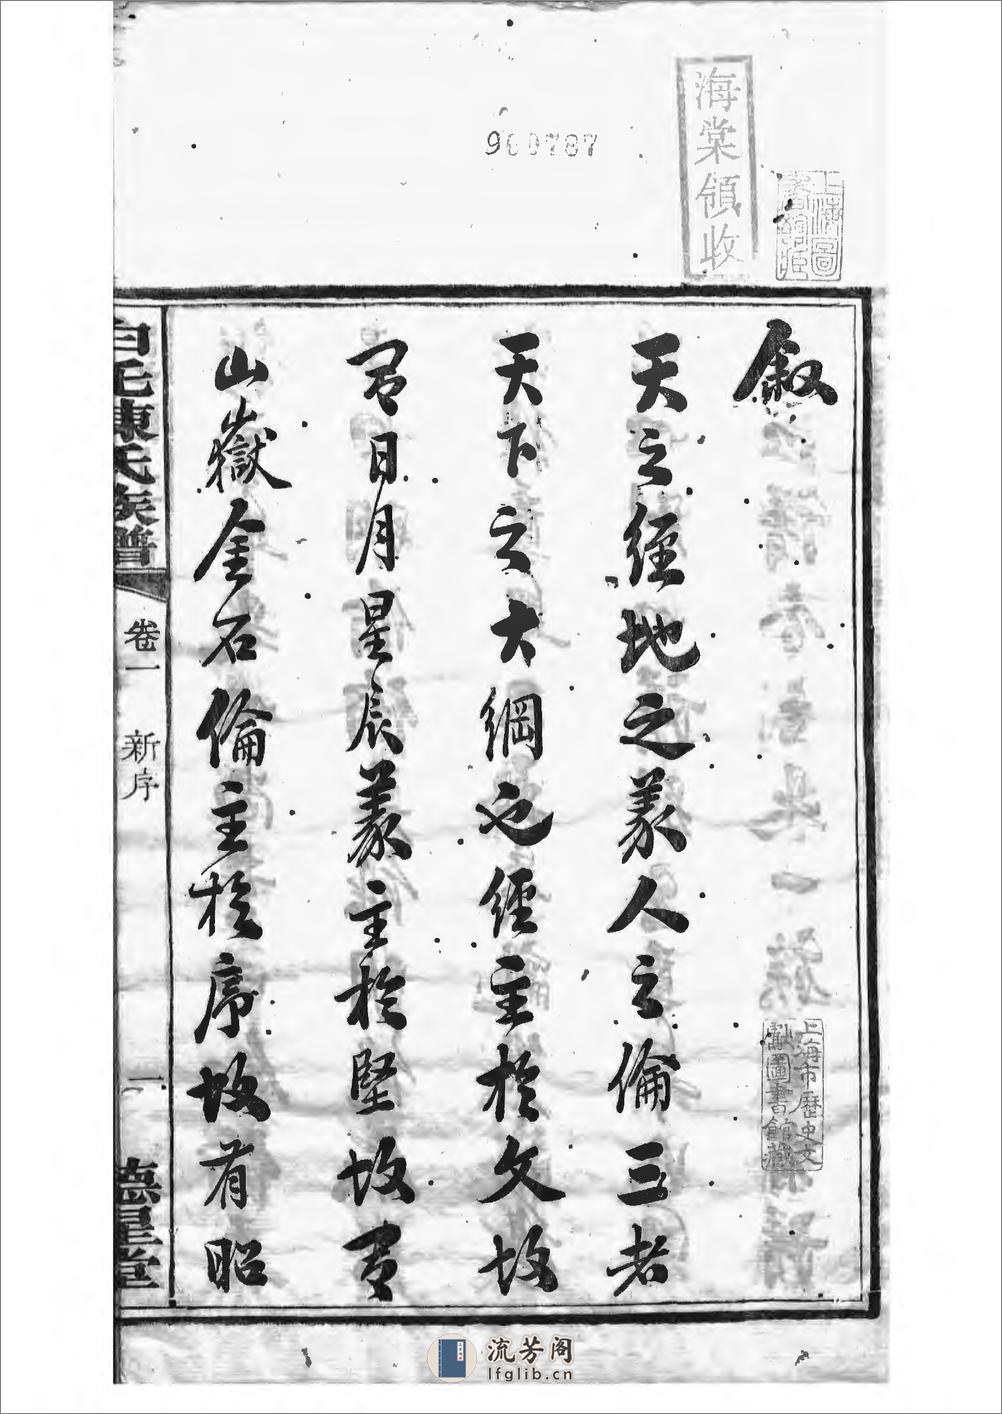 900787
海棠領收
上海圖
上海市歷史文
獻圖書館藏
叙
天之經地之義人之倫三者
天下之大綱也經主於文故
有日月星辰義主於堅故有
山嶽金石倫主於序故有昭
陳氏族譜
卷一
新序
一
德星堂
流芳阁
lfglib.cn